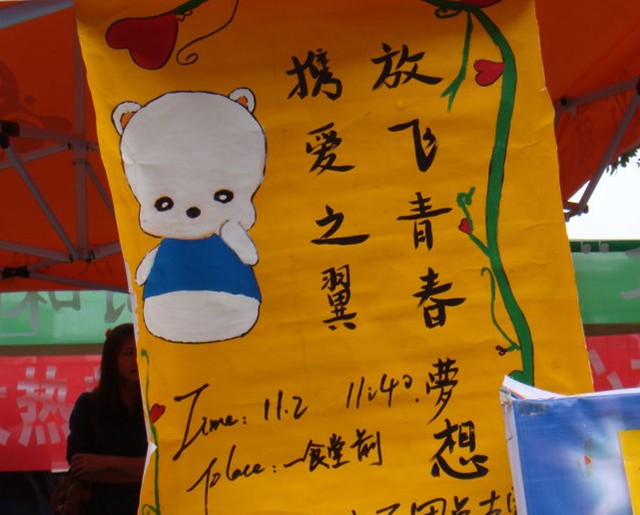 携爱之翼
放飞青春夢想
Time: 11.2 11:40
place: 一食堂前